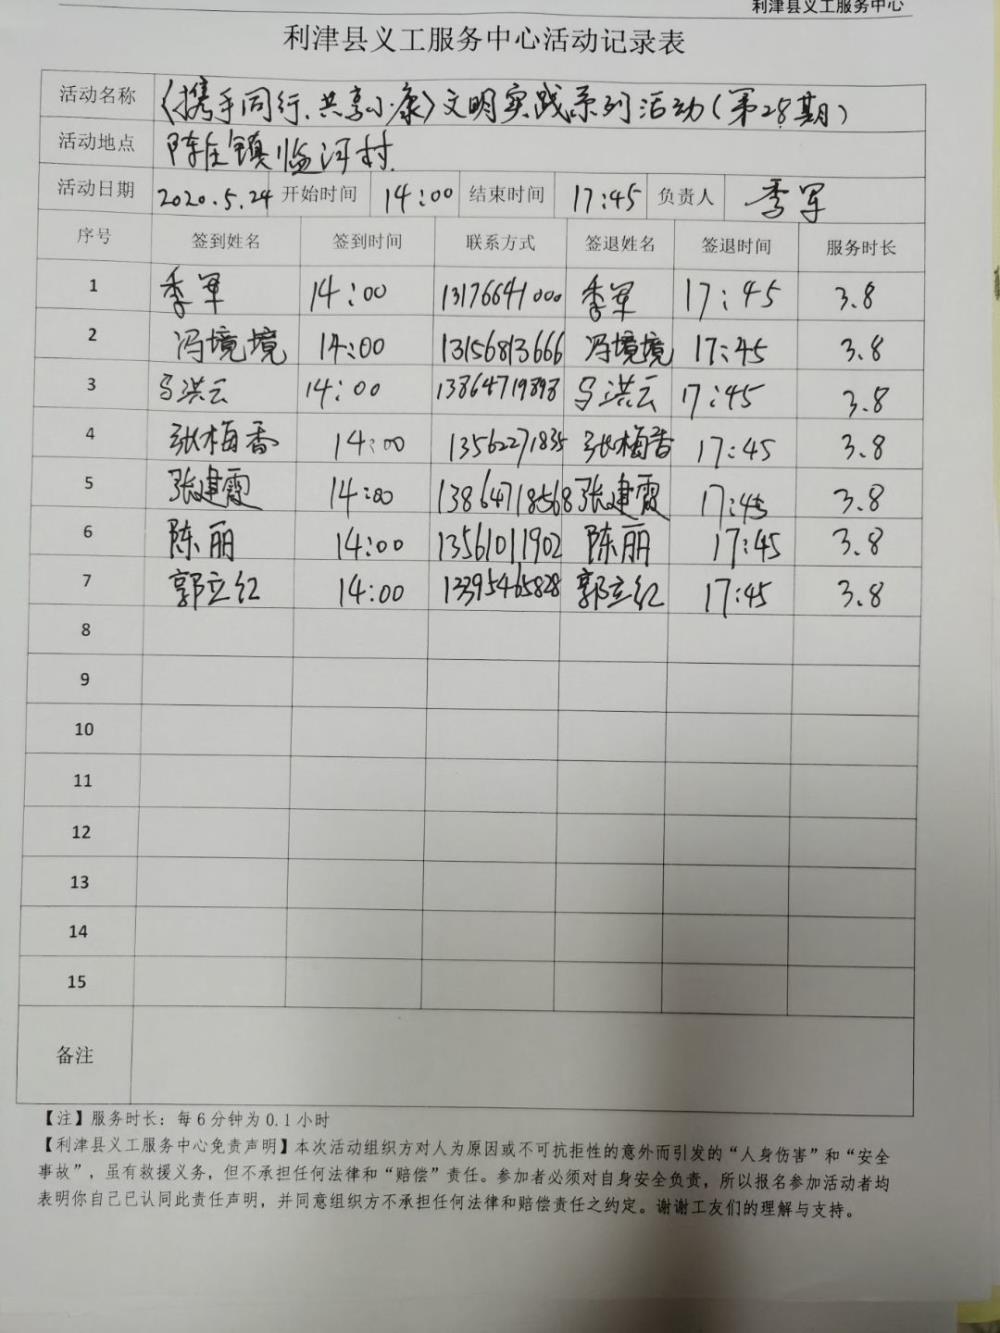 利津县义工服务中心
利津县义工服务中心活动记录表
活动名称 《携手同行、共享小康》文明实践系列活动(第28期)
活动地点 陈庄镇临河村
活动日期 2020.5.24 开始时间 14:00 结束时间 17:45 负责人 季军
序号 签到姓名 签到时间 联系方式 签退姓名 签退时间 服务时长
1 季军 14:00 13176641000 季军 17:45 3.8
2 冯境境 14:00 13156813666 冯境境 17:45 3.8
3 马洪云 14:00 13864719898 马洪云 17:45 3.8
4 张梅香 14:00 13562271835 张梅香 17:45 3.8
5 张建霞 14:00 13864718568 张建霞 17:45 3.8
6 陈丽 14:00 13561011902 陈丽 17:45 3.8
7 郭立红 14:00 13395465828 郭立红 17:45 3.8
8
9
10
11
12
13
14
15
备注
【注】服务时长：每6分钟为0.1小时
【利津县义工服务中心免责声明】本次活动组织方对人为原因或不可抗拒性的意外而引发的“人身伤害”和“安全
事故”，虽有救援义务，但不承担任何法律和“赔偿”责任。参加者必须对自身安全负责，所以报名参加活动者均
表明你自己已认同此责任声明，并同意组织方不承担任何法律和赔偿责任之约定。谢谢工友们的理解与支持。